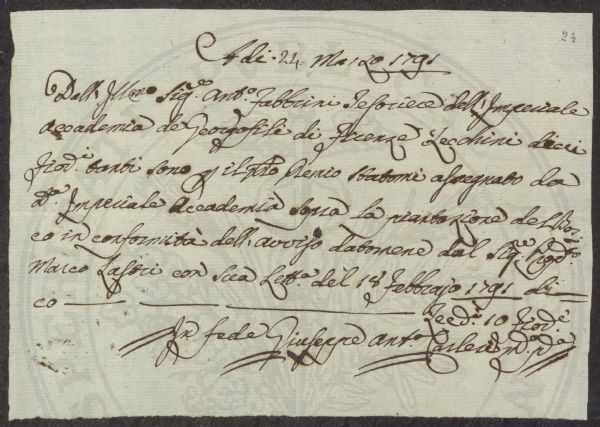 24
Adi. 24. Marzo 1791
Dall' Ill.mo Sig.re Ant.o Fabbrini Tesoriere dell' Imperiale
Accademia de Georgofili di Firenze Zecchini dieci
Fiod.i tanti sono p il Premio statomi assegnato da
d.a Imperiale Accademia sopra la piantazione del Bos:
co in conformità dell' avviso datomene dal Sig.re Prop.o
Marco Lastri con sua Lett.a del 18 Febbrajo 1791 di
co
Zecc.i 10 Fiod.i
In fede Giuseppe Ant.o m.o p.a